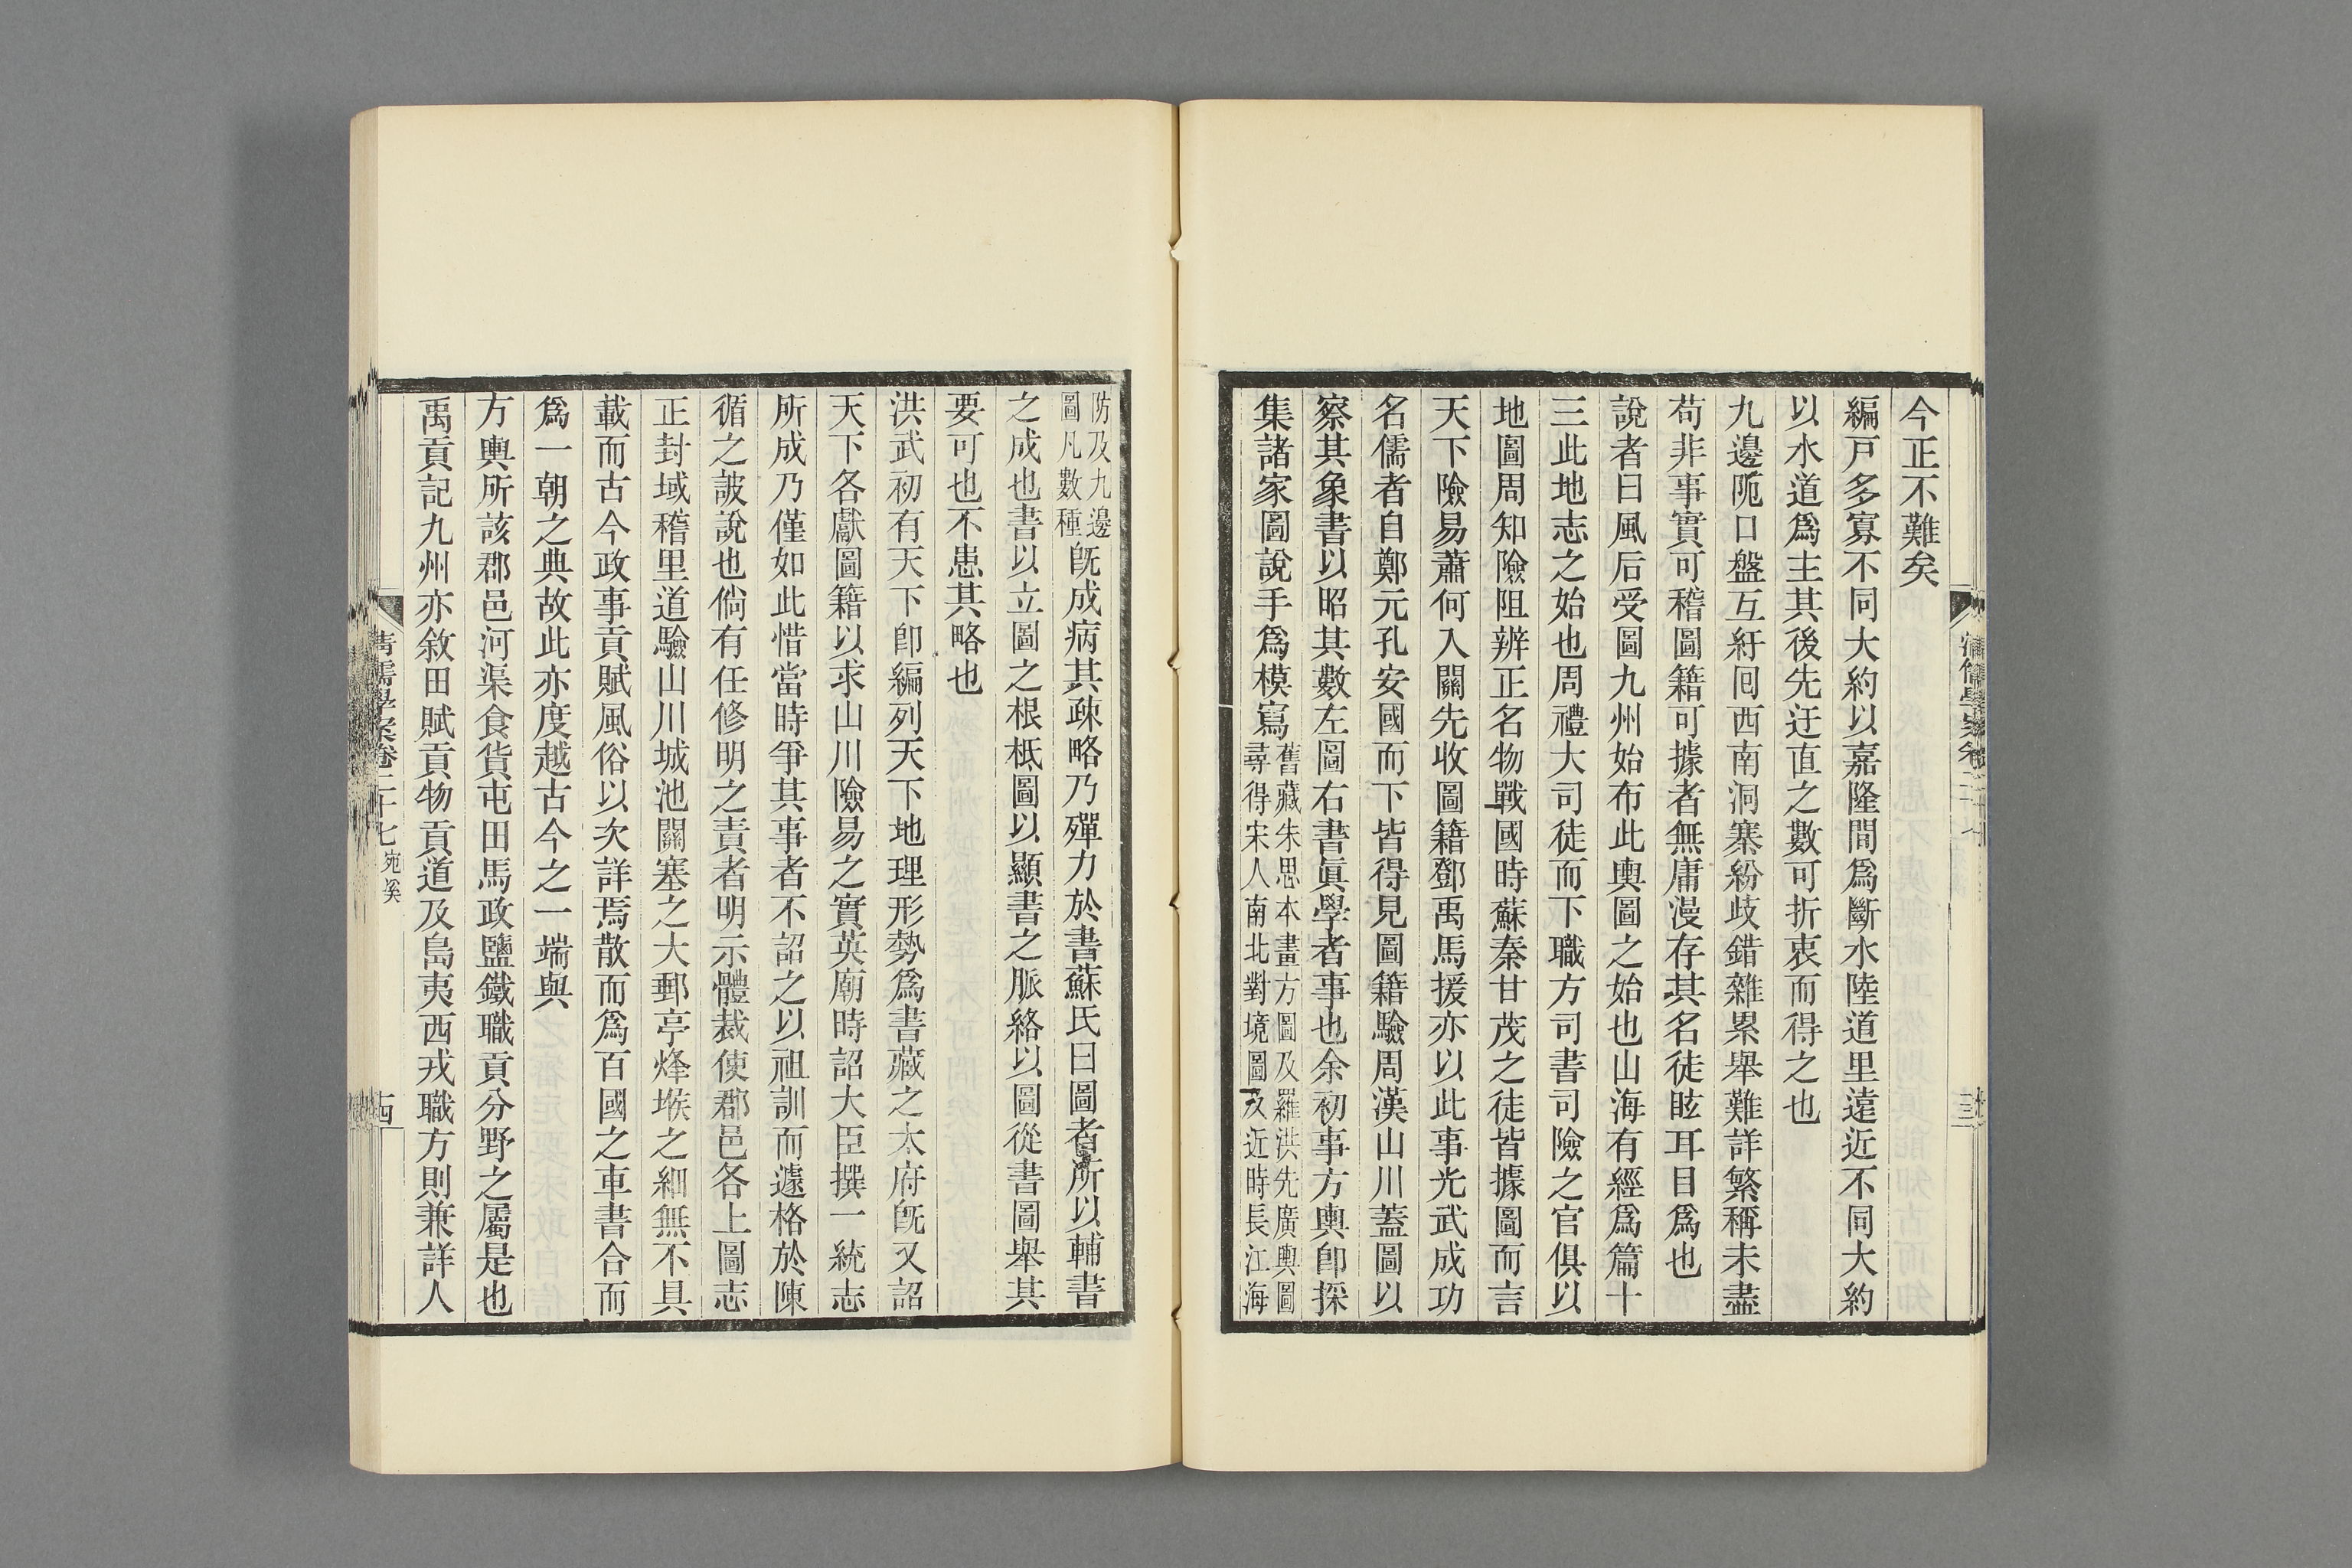 今正不難矣
編戸多寡不同大約以嘉隆間爲斷水陸道里遠近不同大約
以水道爲主其後先迂直之數可折衷而得之也
九邊阨口盤互紆囘西南洞寨紛歧錯雜累舉難詳繁稱未盡
苟非事實可稽圖籍可據者無庸漫存其名徒眩耳目爲也
說者曰風后受圖九州始布此輿圖之始也山海有經爲篇十
三此地志之始也周禮大司徒而下職方司書司險之官俱以
地圖周知險阻辨正名物戰國時蘇秦甘茂之徒皆據圖而言
天下險易蕭何入關先收圖籍鄧禹馬援亦以此事光武成功
名儒者自鄭元孔安國而下皆得見圖籍驗周漢山川蓋圖以
察其象書以昭其數左圖右書眞學者事也余初事方輿卽採
集諸家圖說手爲模寫舊藏朱思本畫方圖及羅洪先廣輿圖尋得宋人南北對境圖及近時長江海
防及九邊圖凡數種旣成病其疎略乃殫力於書蘇氏曰圖者所以輔書
之成也書以立圖之根柢圖以顯書之脈絡以圖從書圖舉其
要可也不患其略也
洪武初有天下卽編列天下地理形勢爲書藏之太府旣又詔
天下各獻圖籍以求山川險易之實英廟時詔大臣撰一統志
所成乃僅如此惜當時爭其事者不詔之以祖訓而遽格於陳
循之詖說也倘有任修明之責者明示體裁使郡邑各上圖志
正封域稽里道驗山川城池關塞之大郵亭烽堠之細無不具
載而古今政事貢賦風俗以次詳焉散而爲百國之車書合而
爲一朝之典故此亦度越古今之一端與
方輿所該郡邑河渠食貨屯田馬政鹽鐵職貢分野之屬是也
禹貢記九州亦敘田賦貢物貢道及島夷西戎職方則兼詳人
清儒學案卷二十七 宛溪